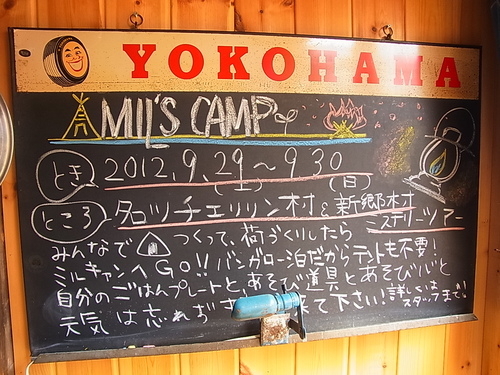 YOKOHAMA
MIL'S CAMP
とき 2012.9.29～9.30
(土) (日)
ところ タロッチェリリン村&新郷村
ミステリーツアー
みんなで つくって、荷づくりしたら
ミルキャンへGO!! バンガロー泊だからテントも不要!
自分のごはんプレートと、あそび道具とあそび心と
天気は忘れぢ えて下さい!
詳しくは
スタッフまで!